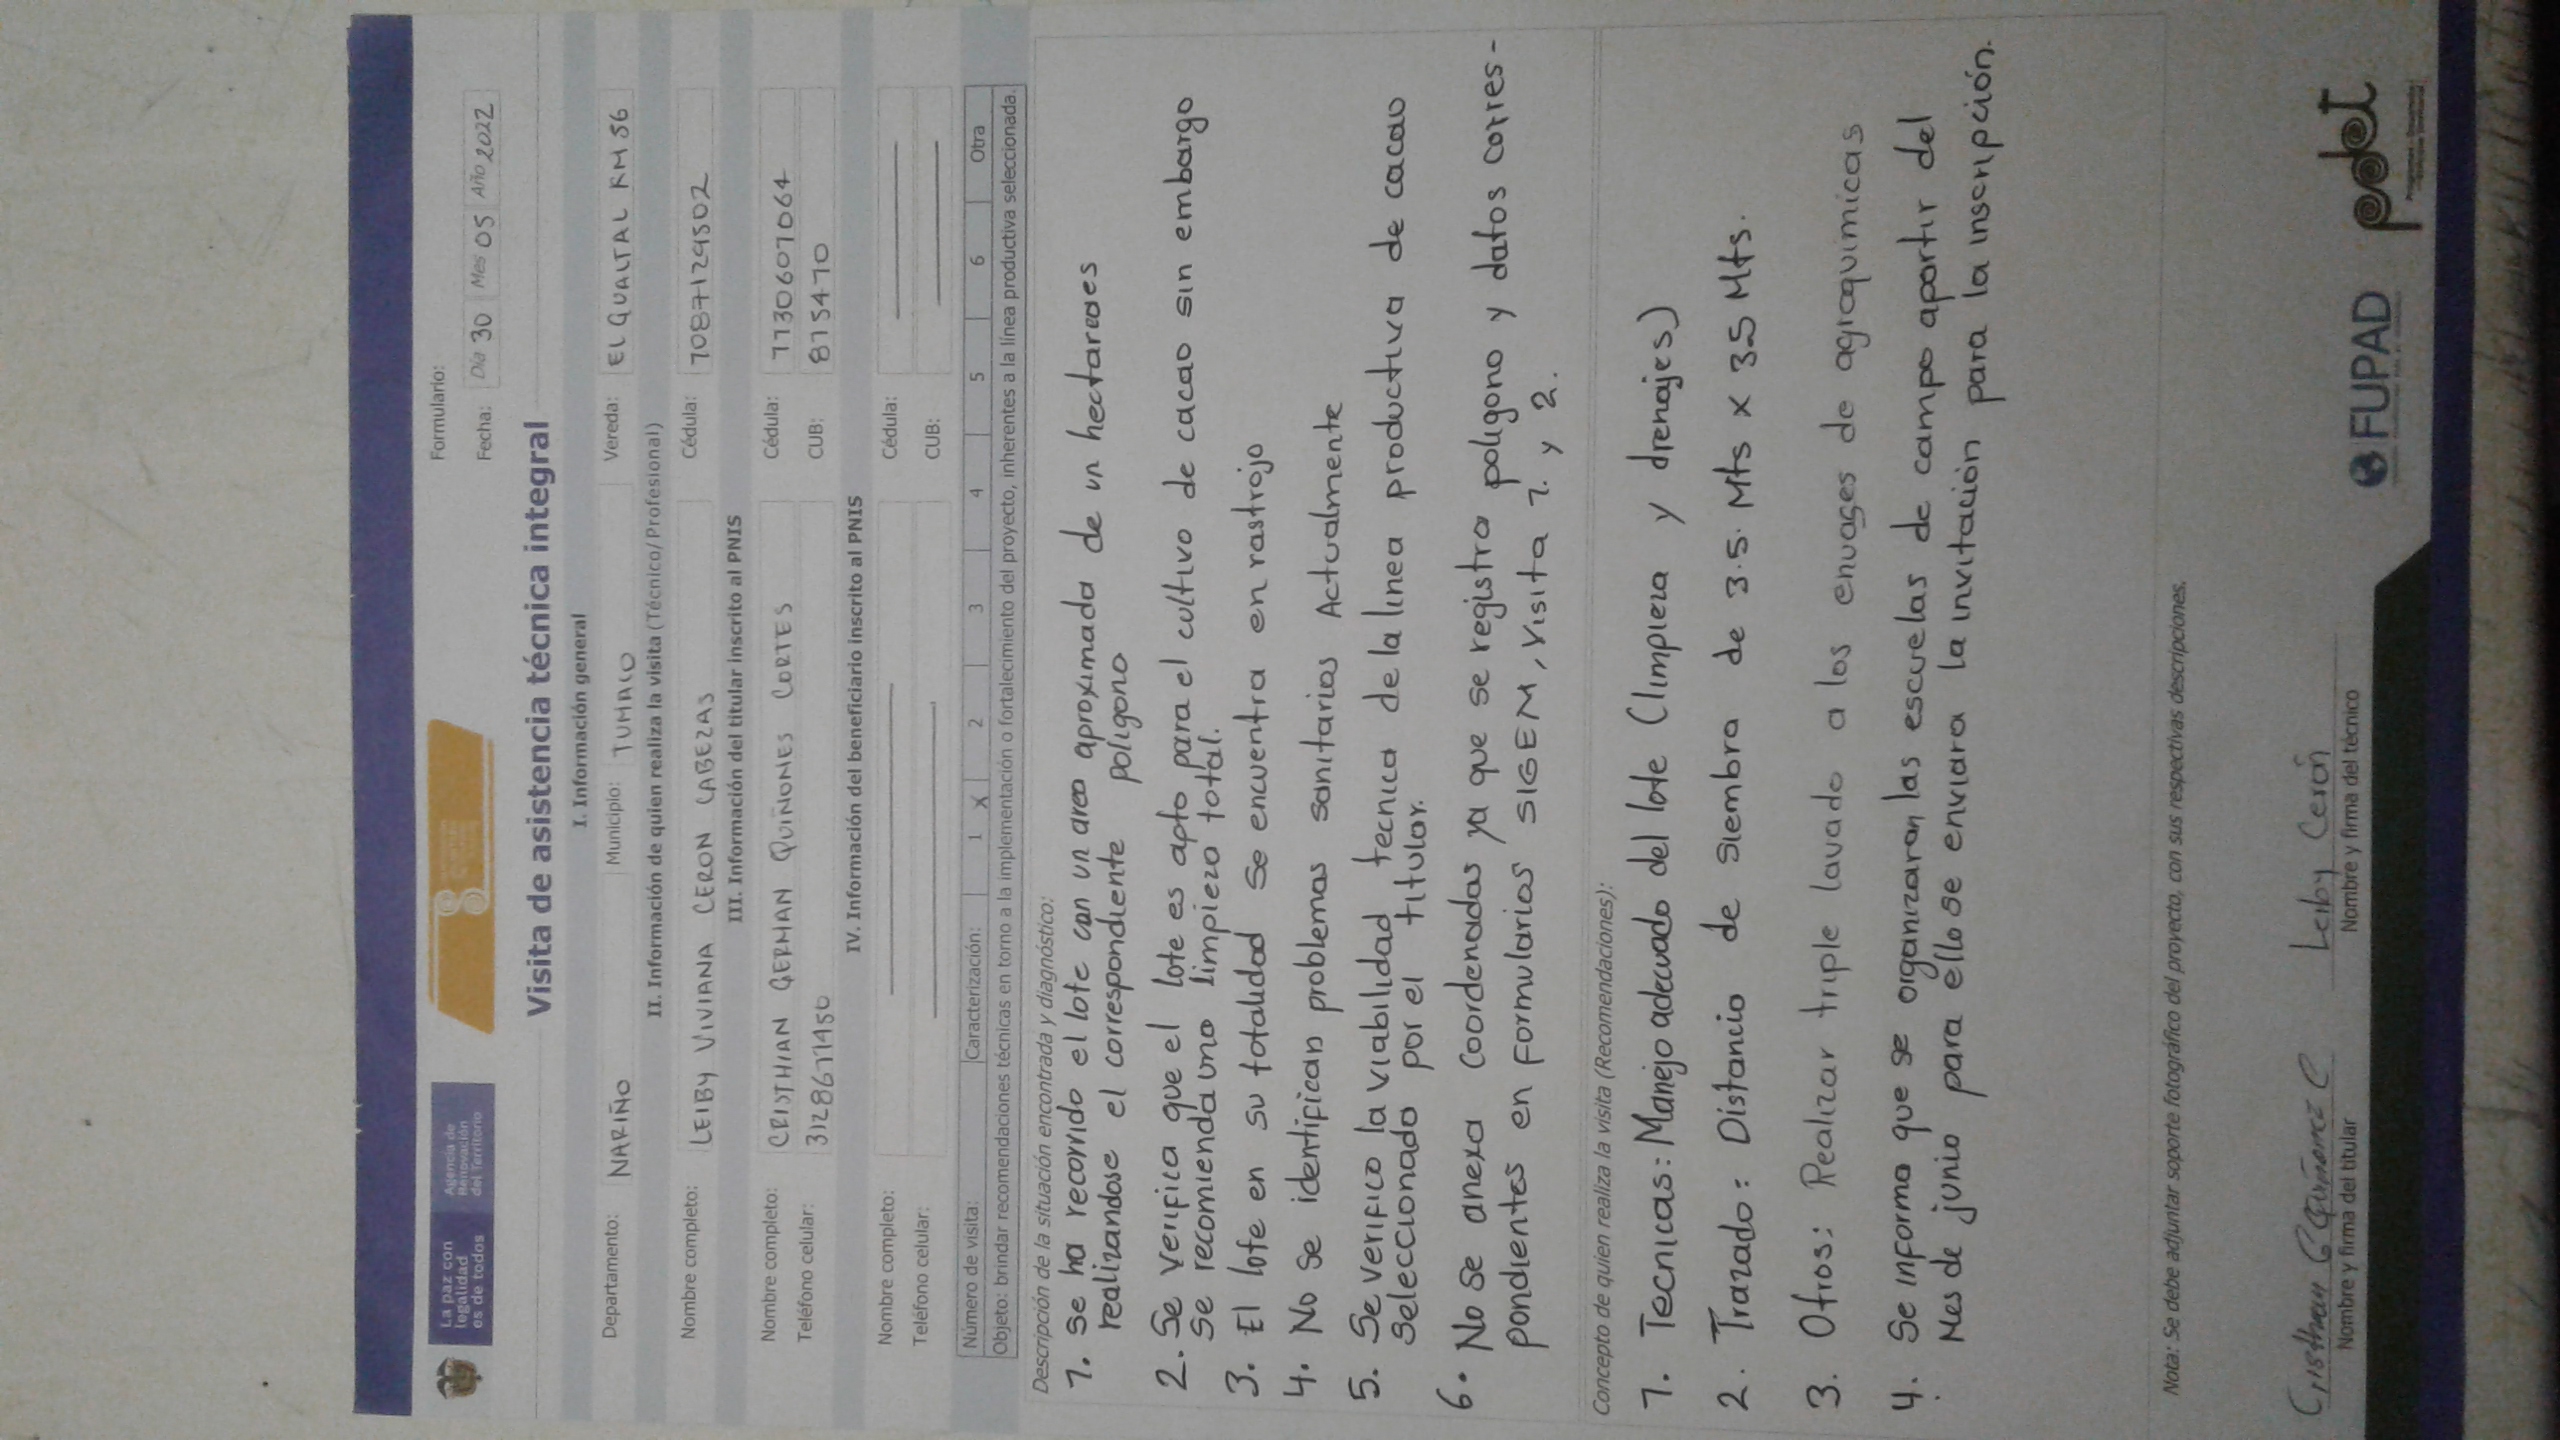 La paz con
legalidad
es de todos
Agencia de
Renovación
del Territorio
Formulario:
Fecha: Día 30 Mes 05 Año 2022
Visita de asistencia técnica integral
I. Información general
Departamento: NARIÑO Municipio: TUMACO Vereda: EL GUALTAL KM 56
II. Información de quien realiza la visita (Técnico/Profesional)
Nombre completo: LEIBY VIVIANA CERON CABEZAS Cédula: 1087129502
III. Información del titular inscrito al PNIS
Nombre completo: CRISTHIAN GERMAN QUIÑONES CORTES Cédula: 1130607064
Teléfono celular: 3128671450 CUB: 8175470
IV. Información del beneficiario inscrito al PNIS
Nombre completo: Cédula:
Teléfono celular: CUB:
Número de visita: Caracterización: 1 X 2 3 4 5 6 Otra
Objeto: brindar recomendaciones técnicas en torno a la implementación o fortalecimiento del proyecto, inherentes a la línea productiva seleccionada.
Descripción de la situación encontrada y diagnóstico:
1. se ha recorrido el lote con un area aproximada de un hectareaes
realizandose el correspondiente poligono
2. Se verifica que el lote es apto para el cultivo de cacao sin embargo
se recomienda una limpieza total.
3. El lote en su totalidad se encuentra en rastrojo
4. No se identifican problemas sanitarios Actualmente
5. Se verifico la viabilidad tecnica de la linea productiva de cacao
Seleccionado por el titular.
6. No se anexa Coordenadas ya que se registra poligono y datos corres-
pondientes en formularios SIGEM, Visita 1 y 2.
Concepto de quien realiza la visita (Recomendaciones):
1. Tecnicas: Manejo adecuado del lote (limpieza y drenajes)
2. Trazado: Distancia de siembra de 3.5. Mts x 35 Mts.
3. Otros: Realizar triple lavado a los envases de agroquimicas
4. Se informa que se organizaran las escuelas de campo apartir del
Mes de junio para ello se enviara la invitación para la inscripción.
Nota: Se debe adjuntar soporte fotográfico del proyecto, con sus respectivas descripciones.
Cristhian G Quiñonez C Leiby Cerón
Nombre y firma del titular Nombre y firma del técnico
FUPAD
pdet